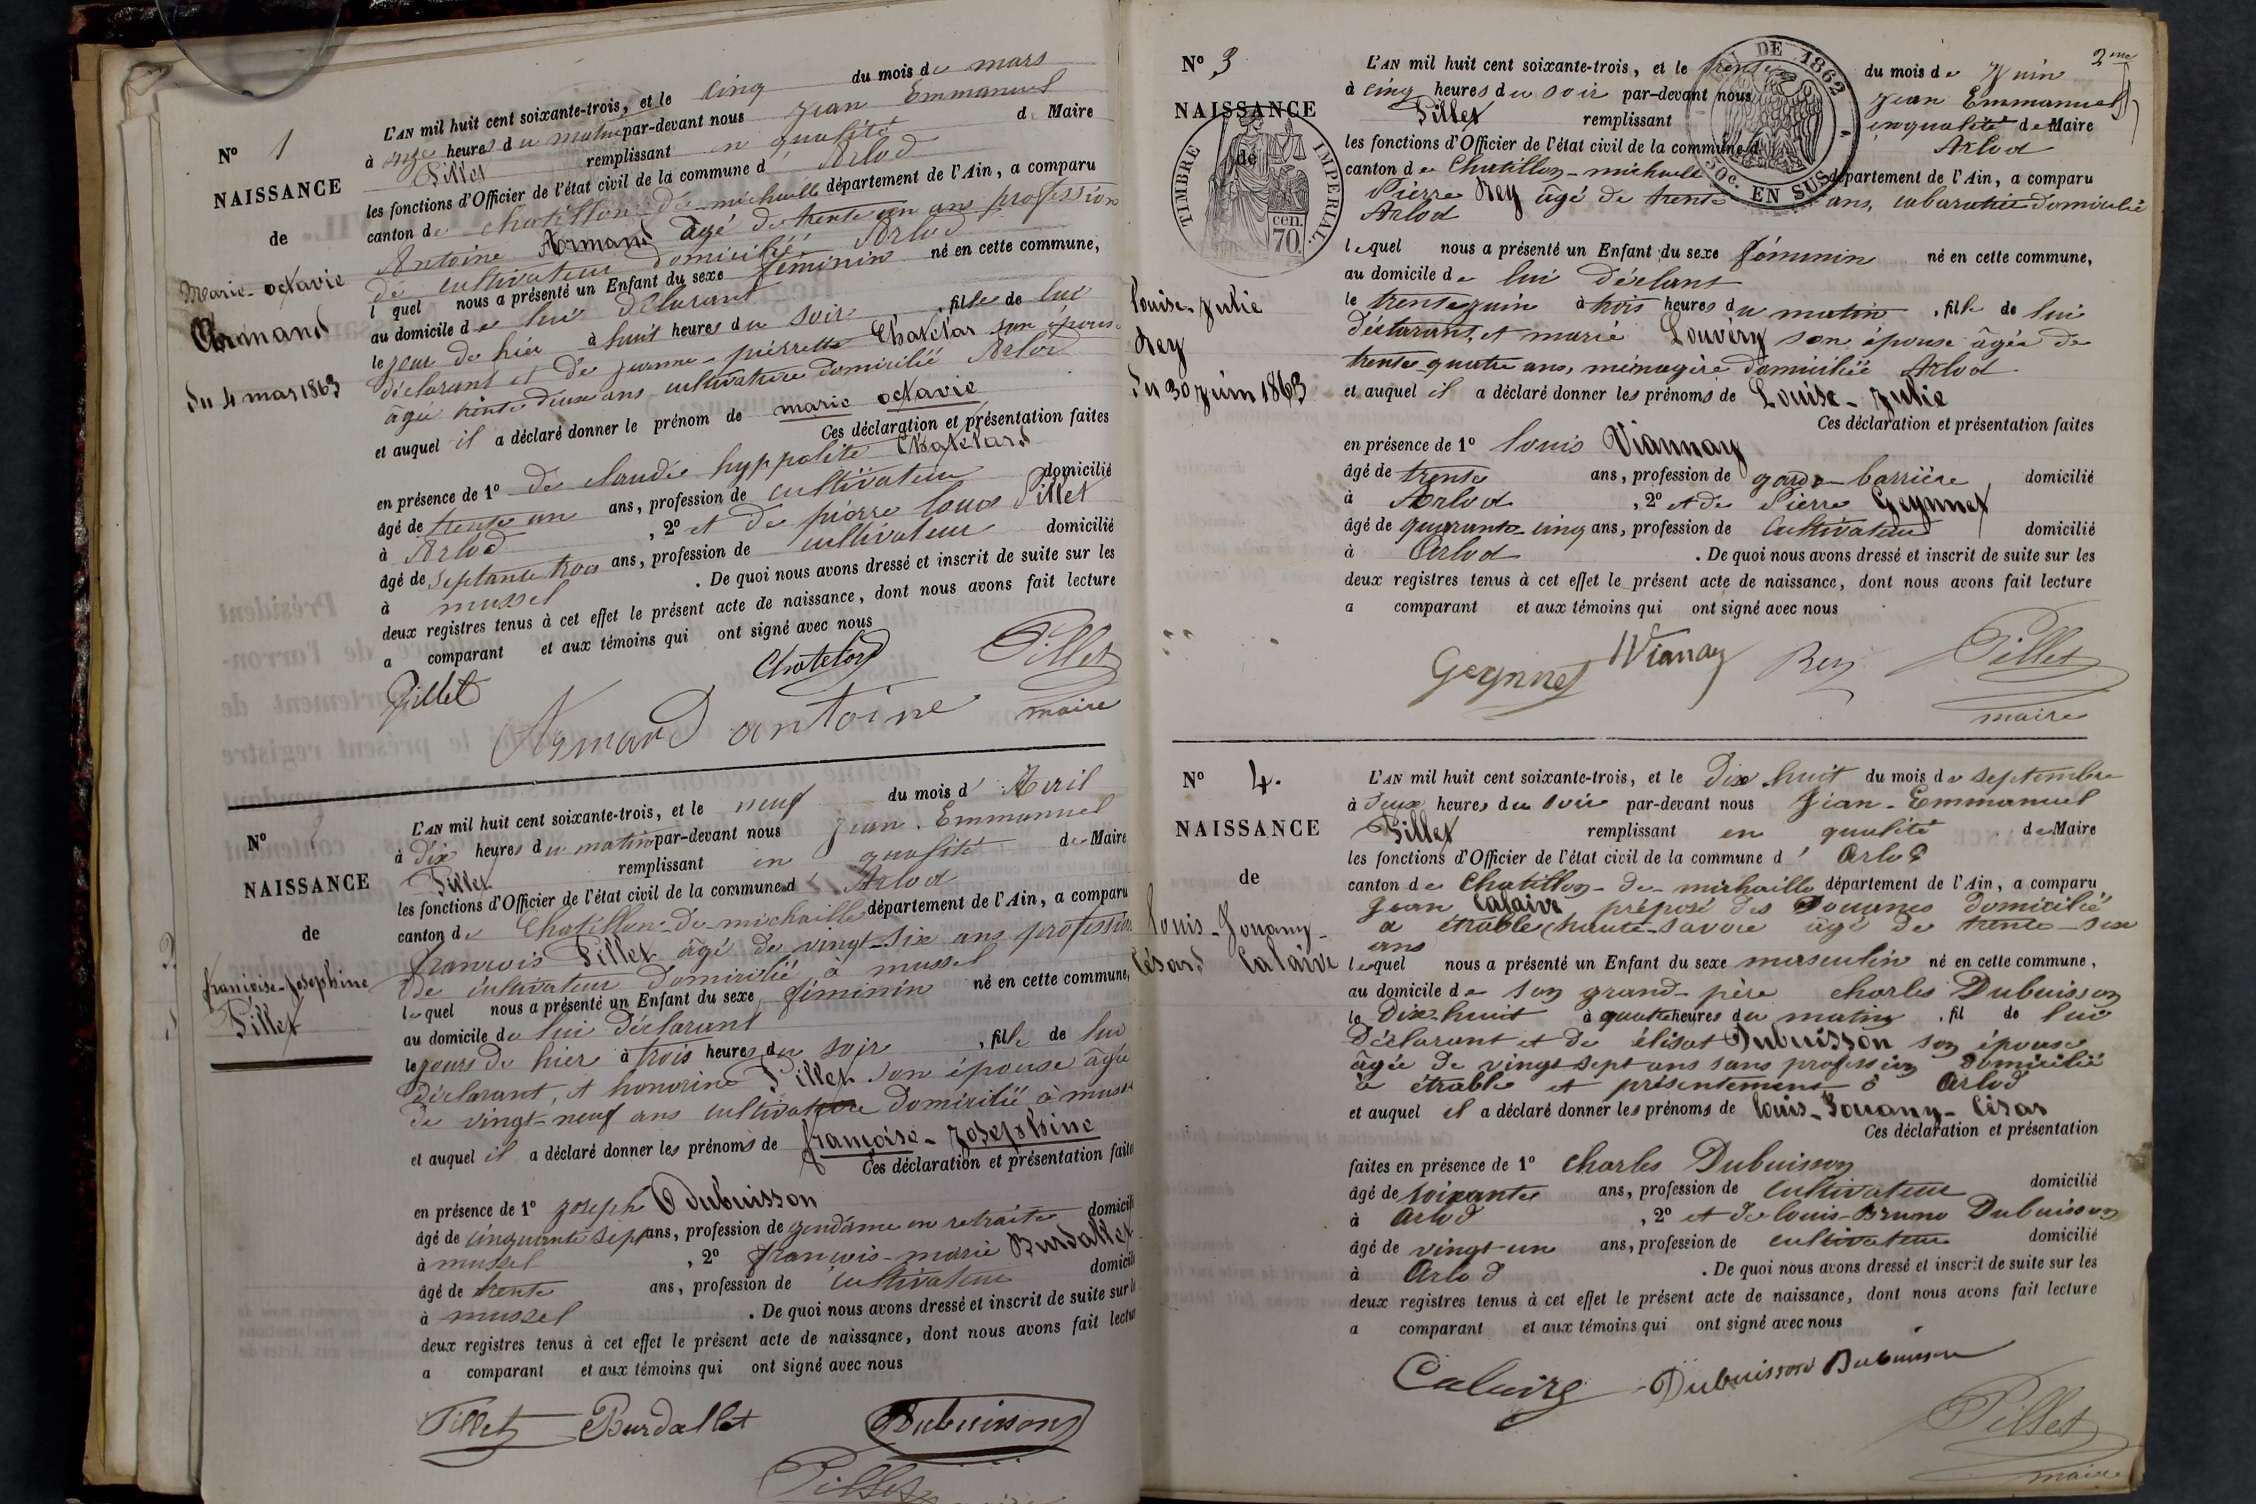 Nº 1
NAISSANCE
de
Marie-octavie
Armand
du 4 mars 1863
L'AN mil huit cent soixante-trois, et le cinq du mois de mars
à onze heures du matin par-devant nous Jean Emmanuel
Pillet remplissant en qualité de Maire
les fonctions d'Officier de l'état civil de la commune d Arlod
canton de chatillon de michaille département de l'Ain, a comparu
Antoine Armand âgé de trente un ans profession
de cultivateur domicilié Arlod
l quel nous a présenté un Enfant du sexe féminin né en cette commune,
au domicile de lui déclarant
le jour de hier à huit heures du soir , fille de lui
déclarant et de jeanne-pierrette Chatelar son épouse
âgée trente deux ans cultivatrice domicilié Arlod
et auquel il a déclaré donner le prénom de marie octavie
Ces déclaration et présentation faites
en présence de 1º de claude hyppolite Chatelard
âgé de trente un ans, profession de cultivateur domicilié
à Arlod , 2º et de pierre louis Pillet
âgé de septante trois ans, profession de cultivateur domicilié
à mussel . De quoi nous avons dressé et inscrit de suite sur les
deux registres tenus à cet effet le présent acte de naissance, dont nous avons fait lecture
a comparant et aux témoins qui ont signé avec nous
Pillet Chatelard Pillet
Armand antoine maire
Nº 2
NAISSANCE
de
françoise-Josephine
Pillet
L'AN mil huit cent soixante-trois, et le neuf du mois d' Avril
à dix heures du matin par-devant nous Jean-Emmanuel
Pillet remplissant en qualité de Maire
les fonctions d'Officier de l'état civil de la commune d' Arlod
canton de Chatillon-de-michaille département de l'Ain, a comparu
francois Pillet âgé de vingt-six ans profession
de cultivateur domicilié à mussel
lequel nous a présenté un Enfant du sexe féminin né en cette commune,
au domicile de lui déclarant
le jours de hier à trois heures du soir , fille de lui
déclarant, et honorine Pillet son épouse âgée
de vingt-neuf ans cultivatrice domicilié à mussel
et auquel il a déclaré donner les prénoms de françoise-Josephine
Ces déclaration et présentation faites
en présence de 1º joseph Dubuisson
âgé de cinquante sept ans, profession de gendarme en retraite domicilié
à mussel , 2º francois-marie Burdallet
âgé de trente ans, profession de cultivateur domicilié
à mussel . De quoi nous avons dressé et inscrit de suite sur les
deux registres tenus à cet effet le présent acte de naissance, dont nous avons fait lecture
a comparant et aux témoins qui ont signé avec nous
Pillet Burdallet Dubuisson
Pillet
2me
Nº 3
NAISSANCE
de
TIMBRE IMPERIAL
cen. 70
Louise-Julie
Rey
Du 30 Juin 1863
DE 1862
50c. EN SUS
L'AN mil huit cent soixante-trois, et le trente du mois de Juin
à cinq heures du soir par-devant nous Jean Emmanuel
Pillet remplissant en qualité de Maire
les fonctions d'Officier de l'état civil de la commune d Arlod
canton de Chatillon-michaille département de l'Ain, a comparu
Pierre Rey âgé de trente ans, cabaretier domicilié
Arlod
lequel nous a présenté un Enfant du sexe féminin né en cette commune,
au domicile de lui déclant
le trente juin à trois heures du matin , fille de lui
déclarant, et marie Louvery son épouse âgée de
trente quatre ans, ménagère domiciliée Arlod
et auquel il a déclaré donner les prénoms de Louise-Julie
Ces déclaration et présentation faites
en présence de 1º louis Viannay
âgé de trente ans, profession de garde-barrière domicilié
à Arlod , 2º et de Pierre Geynnet
âgé de quarante-cinq ans, profession de cultivateur domicilié
à Arlod . De quoi nous avons dressé et inscrit de suite sur les
deux registres tenus à cet effet le présent acte de naissance, dont nous avons fait lecture
a comparant et aux témoins qui ont signé avec nous
Geynnet Vianay Rey Pillet
maire
Nº 4.
NAISSANCE
de
Louis-Jouany-
César Calaire
L'AN mil huit cent soixante-trois, et le dix huit du mois de septembre
à deux heures du soir par-devant nous Jean-Emmanuel
Pillet remplissant en qualité de Maire
les fonctions d'Officier de l'état civil de la commune d' Arlod
canton de Chatillon-de-michaille département de l'Ain, a comparu
Jean Calaire préposé des Douanes domicilié
a étrable (haute-savoie âgé de trente-six
ans
lequel nous a présenté un Enfant du sexe masculin né en cette commune,
au domicile de son grand-père charles Dubuisson
le Dix-huit à quatre heures du matin , fil de lui
déclarant et de élisat Dubuisson son épouse
âgée de vingt sept ans sans profession domicilié
à étrable et présentement à Arlod
et auquel il a déclaré donner les prénoms de Louis-Jouany-César
Ces déclaration et présentation
faites en présence de 1º charles Dubuisson
âgé de soixante ans, profession de cultivateur domicilié
à Arlod , 2º et de louis-Bruno Dubuisson
âgé de vingt-un ans, profession de cultivateur domicilié
à Arlod . De quoi nous avons dressé et inscrit de suite sur les
deux registres tenus à cet effet le présent acte de naissance, dont nous avons fait lecture
a comparant et aux témoins qui ont signé avec nous
Calaire Dubuisson Dubuisson
Pillet
maire